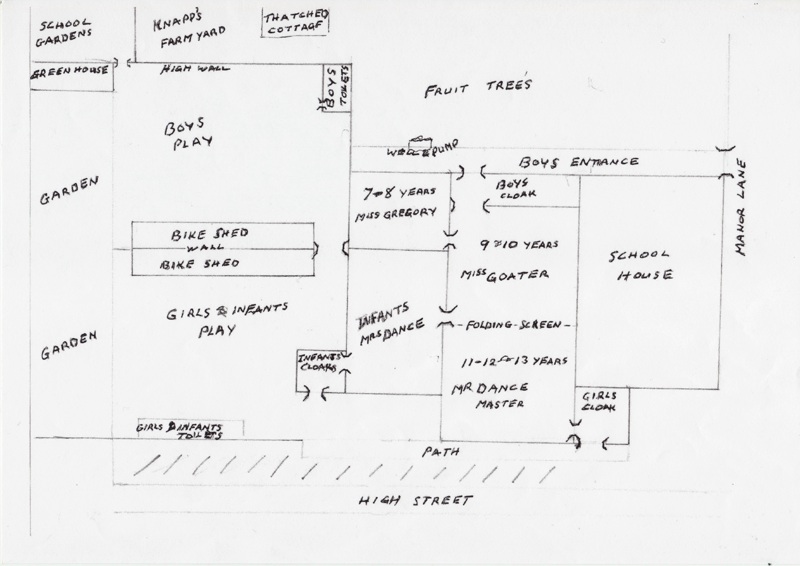 SCHOOL
GARDENS
KNAPP'S
FARM YARD
THATCHED
COTTAGE
GREEN HOUSE
HIGH WALL
BOYS
TOILETS
FRUIT TREE'S
BOYS
PLAY
WELL & PUMP
BOYS ENTRANCE
MANOR LANE
GARDEN
7-8 YEARS
MISS GREGORY
BOYS
CLOAK
BIKE SHED
WALL
BIKE SHED
9 & 10 YEARS
MISS GOATER
SCHOOL
HOUSE
GIRLS & INFANTS
PLAY
INFANTS
MRS DANCE
FOLDING-SCREEN
GARDEN
INFANTS
CLOAKS
11-12 & 13 YEARS
MR DANCE
MASTER
GIRLS
CLOAK
GIRLS & INFANTS
TOILETS
PATH
HIGH STREET